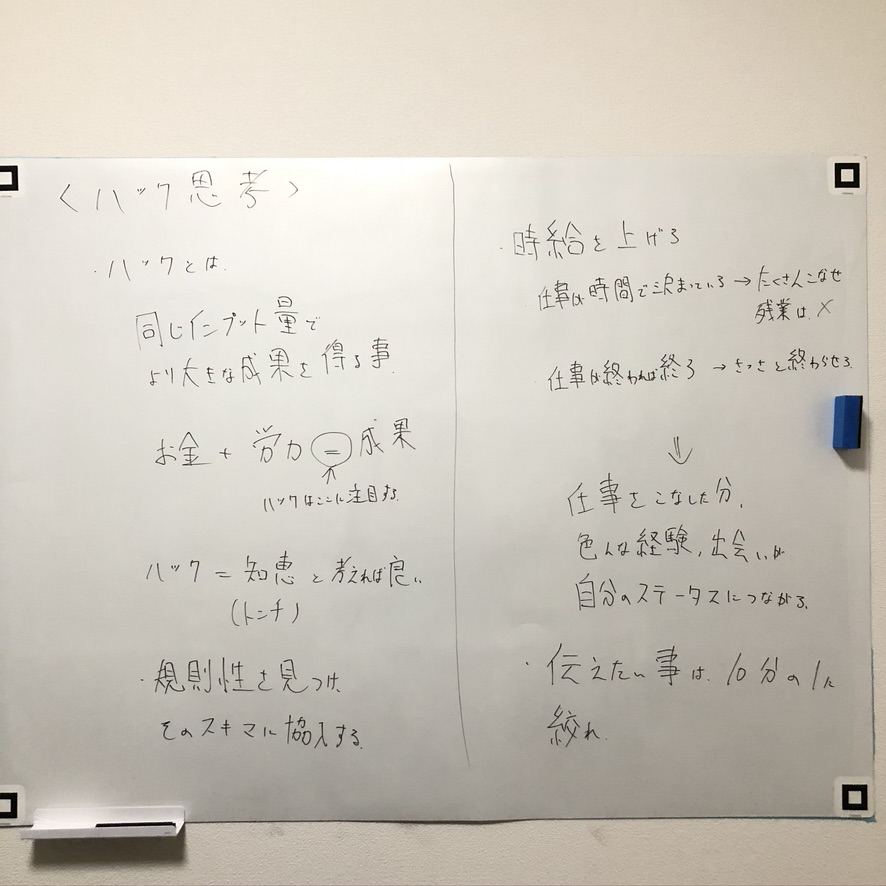 〈ハック思考〉
・ハックとは、
同じインプット量で
より大きな成果を得る事.
お金 + 労力 = 成果
↑
ハックはここに注目する.
ハック = 知恵 と考えれば良い
(トンチ)
・規則性を見つけ、
そのスキマに協入する.
・時給を上げろ
仕事は時間で決まっている → たくさんこなせ
残業は、×
仕事が終われば終る → さっさと終わらせろ.
⇓
仕事をこなした分、
色んな経験、出会いが
自分のステータスにつながる.
・伝えたい事は、10分の1に
絞れ.